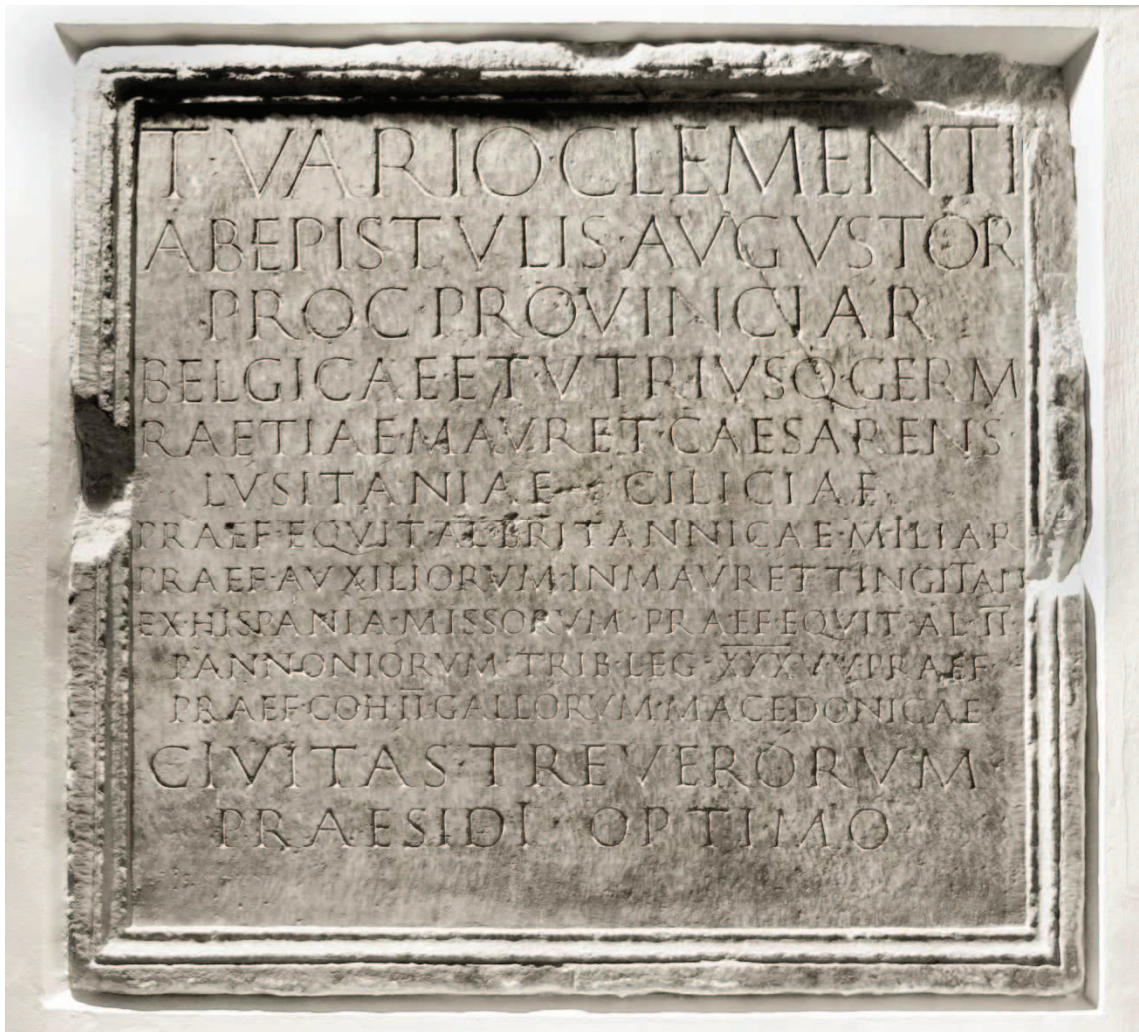 T·VARIO·CLEMENTI
AB EPISTVLIS·AVGVSTOR
PROC·PROVINCIAR
BELGICAE·ET·VTRIVSQ·GERM
RAETIAE·MAVRET·CAESARENS
LVSITANIAE CILICIAE
PRAEF·EQVIT·AL·BRITANNICAE·MILIAR
PRAEF·AVXILIORVM·IN MAVRET·TINGITAN
EX·HISPANIA·MISSORVM·PRAEF·EQVIT·AL·II
PANNONIORVM·TRIB·LEG·XXX·VV·PRAEF
PRAEF·COH·II GALLORVM·MACEDONICAE
CIVITAS·TREVERORVM
PRAESIDI OPTIMO